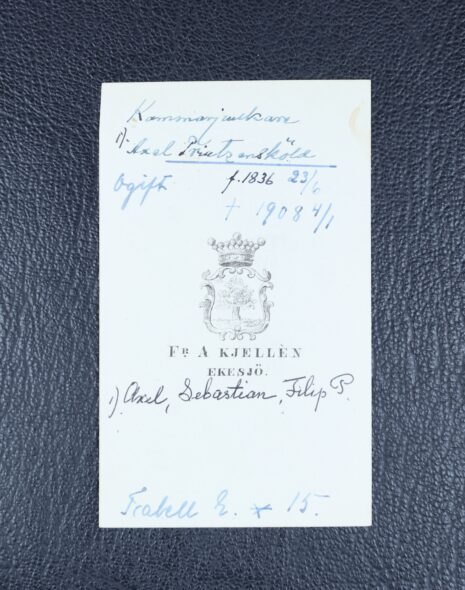 Kammarjunkare
1) Axel Printzensköld
Ogift f. 1836 23/6
† 1908 4/1
FR A KJELLÈN
EKESJÖ.
1) Axel, Sebastian, Filip P.
E. 15.